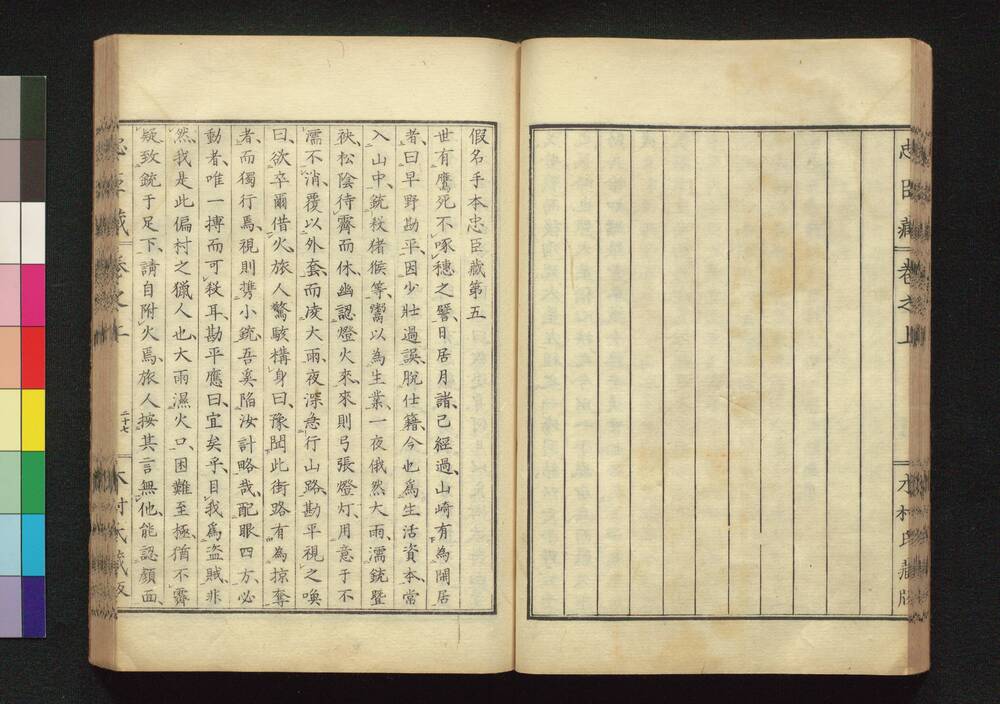 忠臣藏 卷之上
木村氏藏版
假名手本忠臣藏第五
世有鷹死不啄穗之譬日居月諸已經過山崎有為閑居
者曰早野勘平因少壯過誤脫仕籍今也為生活資本常
入山中銃杀猪猴等鬻以為生業一夜俄然大雨濡銃暨
袂松陰待霽而休幽認燈火來來則弓張燈灯用意于不
濡不消覆以外套而凌大雨夜深急行山路勘平視之喚
曰欲卒爾借火旅人驚駭構身曰豫聞此街路有為掠奪
者而獨行焉視則携小銃吾奚陷汝計略哉配眼四方必
動者唯一搏而可杀耳勘平應曰宜矣乎目我為盜賊非
然我是此偏村之獵人也大雨濕火口困難至極猶不霽
疑致銃于足下請自附火焉旅人按其言無他能認顏面
忠臣藏 卷之上
二十七
木村氏藏版